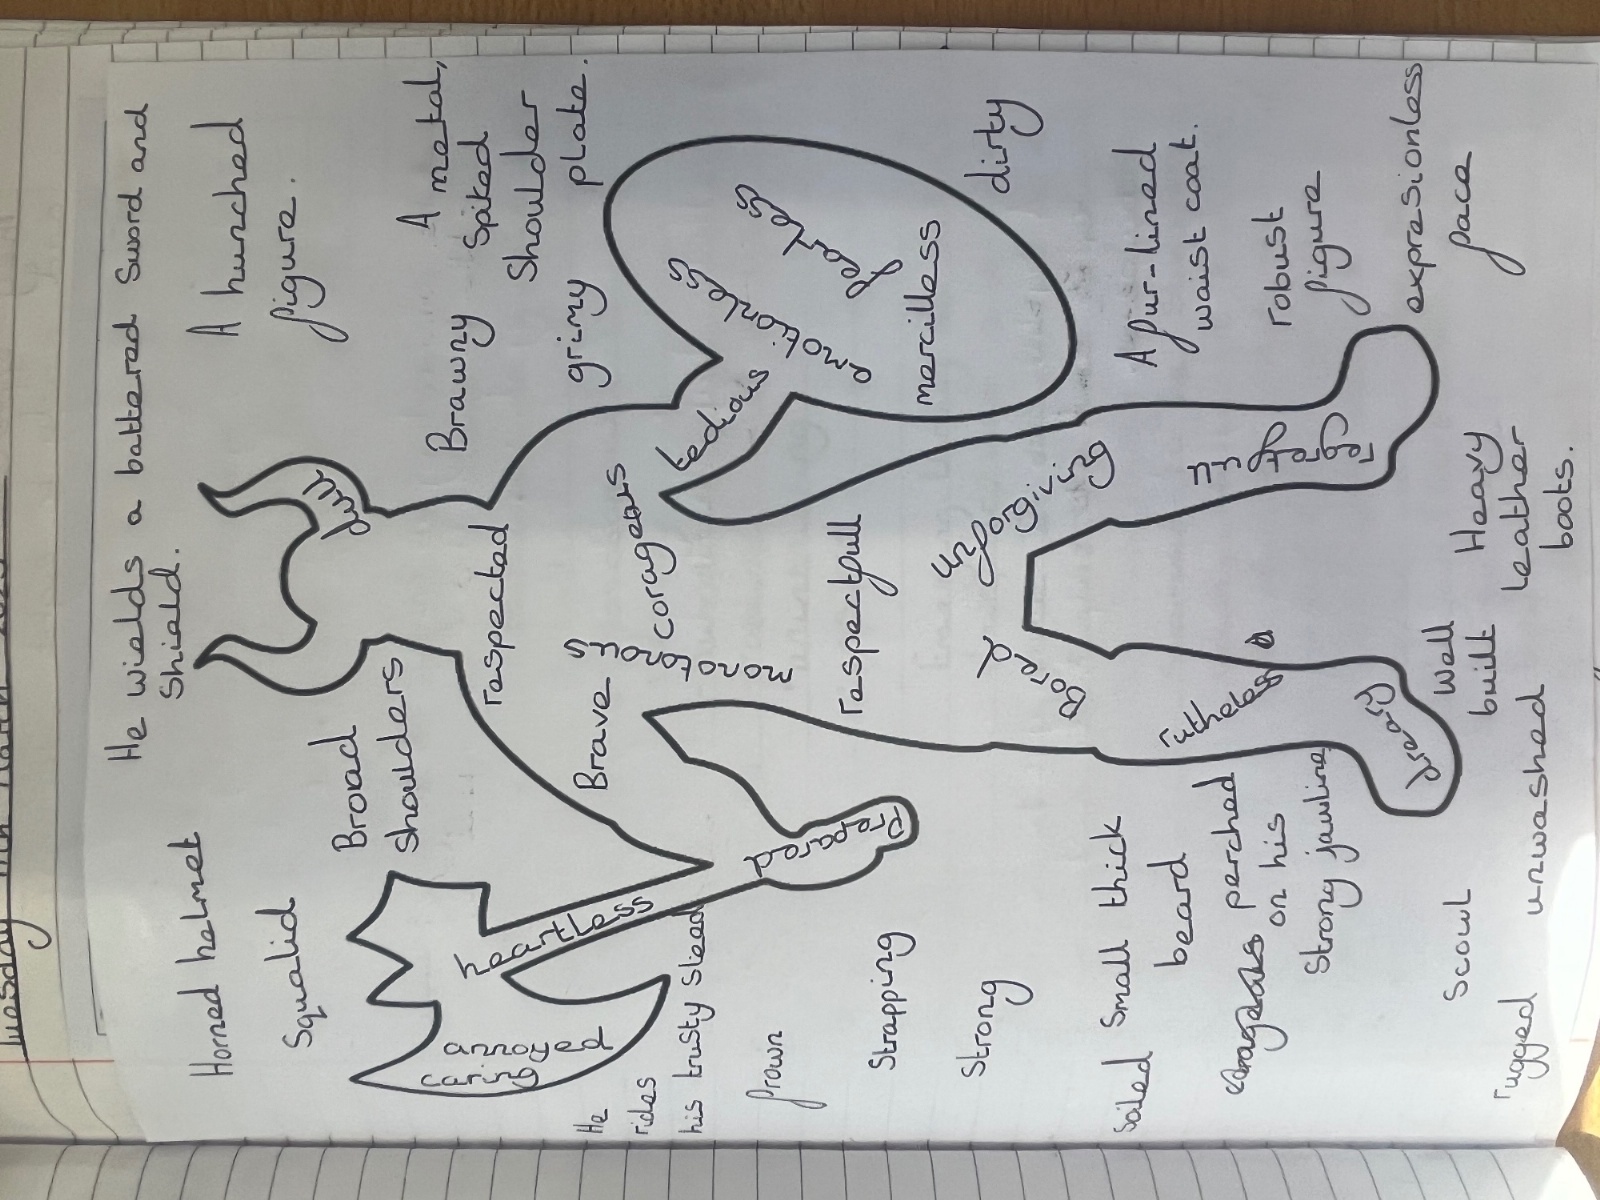 He wields a battered Sword and
Shield.
Horned helmet
A hunched
figure.
Squalid
Broad
Shoulders
A metal,
Spiked
Shoulder
plate.
Brawny
grimy
dull
respected
heartless
Brave
corageous
monotonous
tedious
emotionless
fearless
mercilless
dirty
He
rides
his trusty steed
Prepared
frown
Strapping
Strong
respectful
unforgiving
Bored
A fur-lined
waist coat.
robust
figure
expresionless
face
regretful
rutheless
dreary
Soiled
Small thick
beard
perched
on his
Strong jawline
Scowl
Well
built
Heavy
leather
boots.
rugged
unwashed